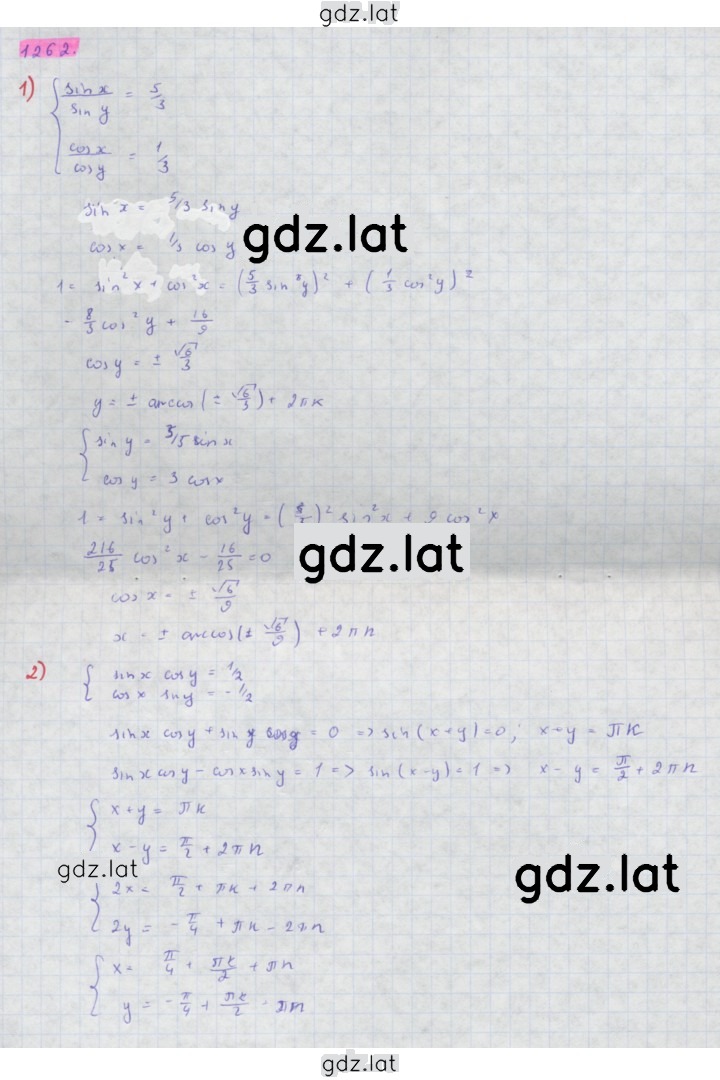 gdz.lat
1262.
1) { sin x / sin y = 5/3
cos x / cos y = 1/3
sin x = 5/3 sin y
gdz.lat
cos x = 1/3 cos y
1 = sin² x + cos² x = (5/3 sin² y)² + (1/3 cos² y)²
- 8/3 cos² y + 16/9
cos y = ± √6/3
y = ± arccos (± √6/3) + 2πk
{ sin y = 3/5 sin x
cos y = 3 cos x
1 = sin² y + cos² y = ( )² sin² x + 9 cos² x
gdz.lat
216/25 cos² x - 16/25 = 0
cos x = ± √6/9
x = ± arccos (± √6/9) + 2πn
2) { sin x cos y = 1/2
cos x sny = - 1/2
sin x cos y + sin y cos y = 0 => sin (x + y) = 0; x + y = πk
sin x cos y - cos x sin y = 1 => sin (x - y) = 1 => x - y = π/2 + 2πn
{ x + y = πk
x - y = π/2 + 2πn
gdz.lat
gdz.lat
{ 2x = π/2 + πk + 2πn
2y = - π/4 + πk - 2πn
{ x = π/4 + πk/2 + πn
y = - π/4 + πk/2 - πn
gdz.lat